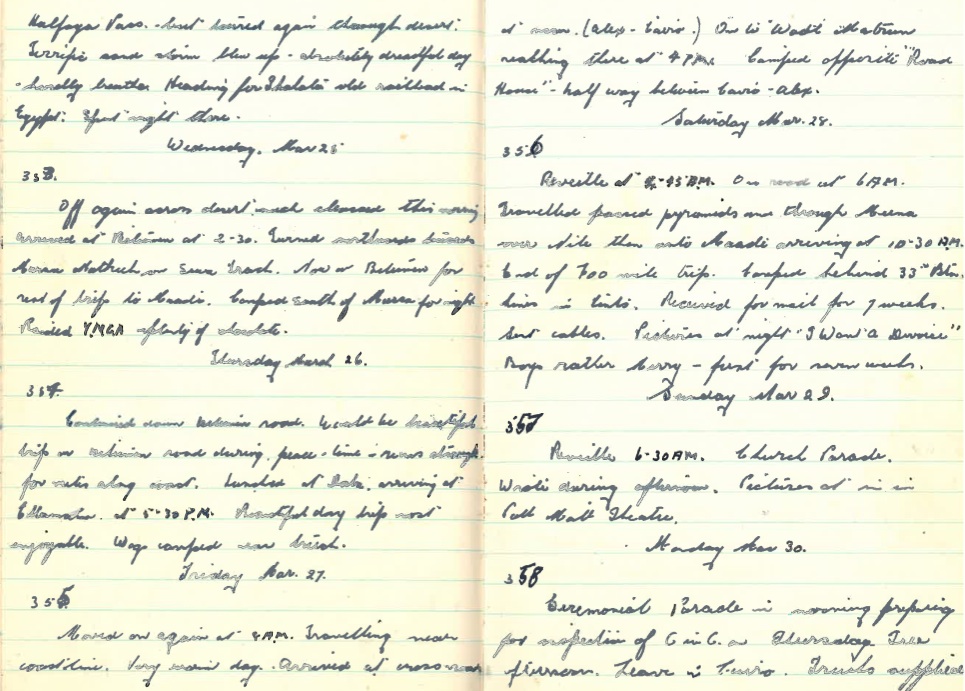 Halfaya Pass. - but toured again through desert.
Terrific sand storm blew up - absolutely dreadful day
- hardly breathe. Heading for Shalata old railhead in
Egypt. Spent night there.
Wednesday. Mar 25
353.
Off again across desert much cleaned this morning
arrived at at 2-30. Turned northwards towards
Mersa Matruh on Siwa Track. Now on for
rest of trip to Maadi. Camped south of Mersa for night
Raided Y.M.C.A of plenty of chocolate.
Thursday March 26.
354.
Continued down road. Would be beautiful
trip on road during peace-time - runs straight
for miles along coast. Lunched at Daba, arriving at
at 5-30 P.M. Beautiful day trip most
enjoyable. Wogs camped near beach.
Friday Mar. 27.
355
Moved on again at 8 AM. Travelling near
coastline. Very warm day. Arrived at cross-roads
at noon. (Alex - Cairo.) On to Wadi Natrun
reaching there at 4 P.M. Camped opposite "Road
House" - half way between Cairo - Alex.
Saturday Mar. 28.
356
Reveille at 4-45 A.M. On road at 6 A.M.
Travelled passed pyramids through Meena
over Nile then onto Maadi arriving at 10-30 A.M.
End of 700 mile trip. Camped behind 33rd Btn.
lines in tents. Received for mail for 7 weeks.
Sent cables. Pictures at night "I Want A Divorce"
Boys rather merry - first for seven weeks.
Sunday Mar 29.
357
Reveille 6-30 AM. Church Parade.
Wrote during afternoon. Pictures at in in
Pall Mall Theatre.
Monday Mar 30.
358
Ceremonial Parade in morning preparing
for inspection of C in C. on Thursday. Free
afternoon. Leave in Cairo. Trucks supplied